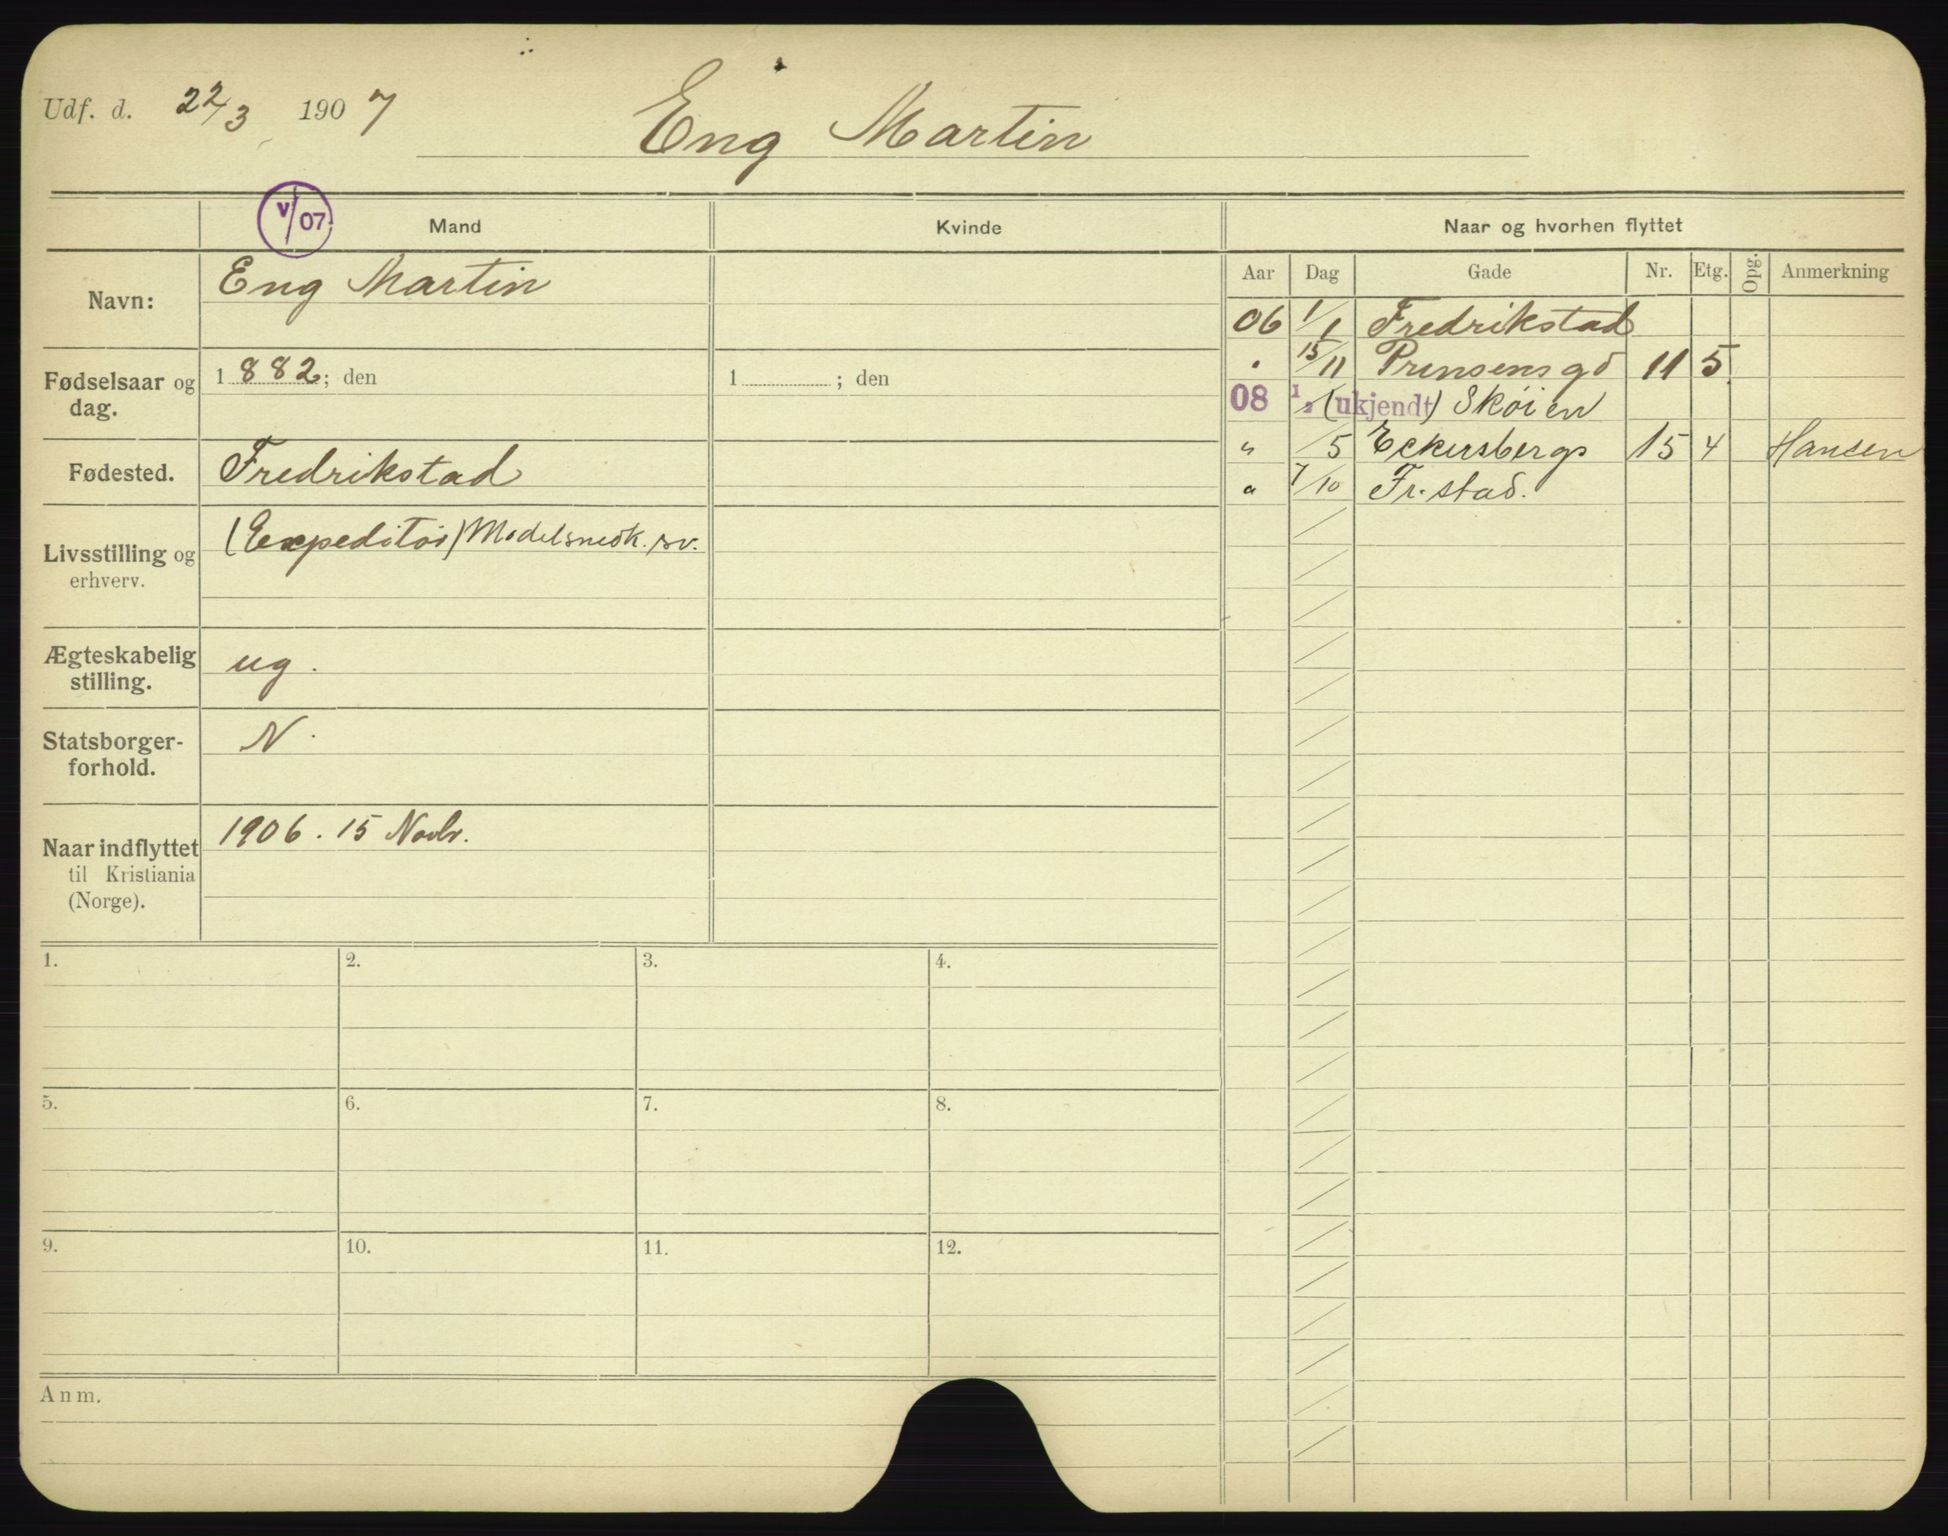 Udf. d. 22/3 1907
Eng Martin
V/07
Mand
Kvinde
Naar og hvorhen flyttet
Navn:
Eng Martin
Fødselsaar og dag.
1882; den
1 ; den
Fødested.
Fredrikstad
Livsstilling og erhverv.
(Expeditør) Modelsnedk. sv.
Ægteskabelig stilling.
ug.
Statsborgerforhold.
N.
Naar indflyttet til Kristiania (Norge).
1906. 15 Novbr.
Aar Dag Gade Nr. Etg. Opg. Anmerkning
06 1/1 Fredrikstad
" 15/11 Prinsensgd 11 5
08 1/1 (ukjendt) Skøien
" /5 Eckersbergs 15 4 Hansen
" 7/10 Fr.stad.
1. 2. 3. 4.
5. 6. 7. 8.
9. 10. 11. 12.
Anm.